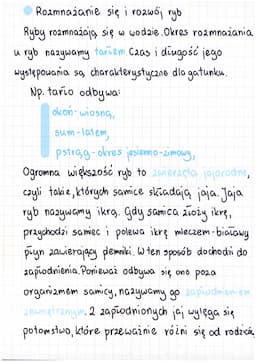 Rozmnażanie się i rozwój ryb
Ryby rozmnażają się w wodzie. Okres rozmnażania
u ryb nazywamy tarłem. Czas i długość jego
występowania są charakterystyczne dla gatunku.
Np. tarło odbywa:
okoń - wiosną,
sum - latem,
pstrąg - okres jesienno-zimowy,
Ogromna większość ryb to zwierzęta jajorodne,
czyli takie, których samice składają jaja. Jaja
ryb nazywamy ikrą. Gdy samica złoży ikrę,
przychodzi samiec i polewa ikrę mleczem - białawy
płyn zawierający plemniki. W ten sposób dochodzi do
zapłodnienia. Ponieważ odbywa się ono poza
organizmem samicy, nazywamy go zapłodnieniem
zewnętrznym. Z zapłodnionych jaj wylęga się
potomstwo, które przeważnie różni się od rodzica,